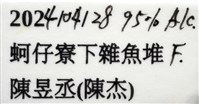 2024/04/28 95% Alc.
蚵仔寮下雜魚堆 F.
陳昱丞(陳杰)